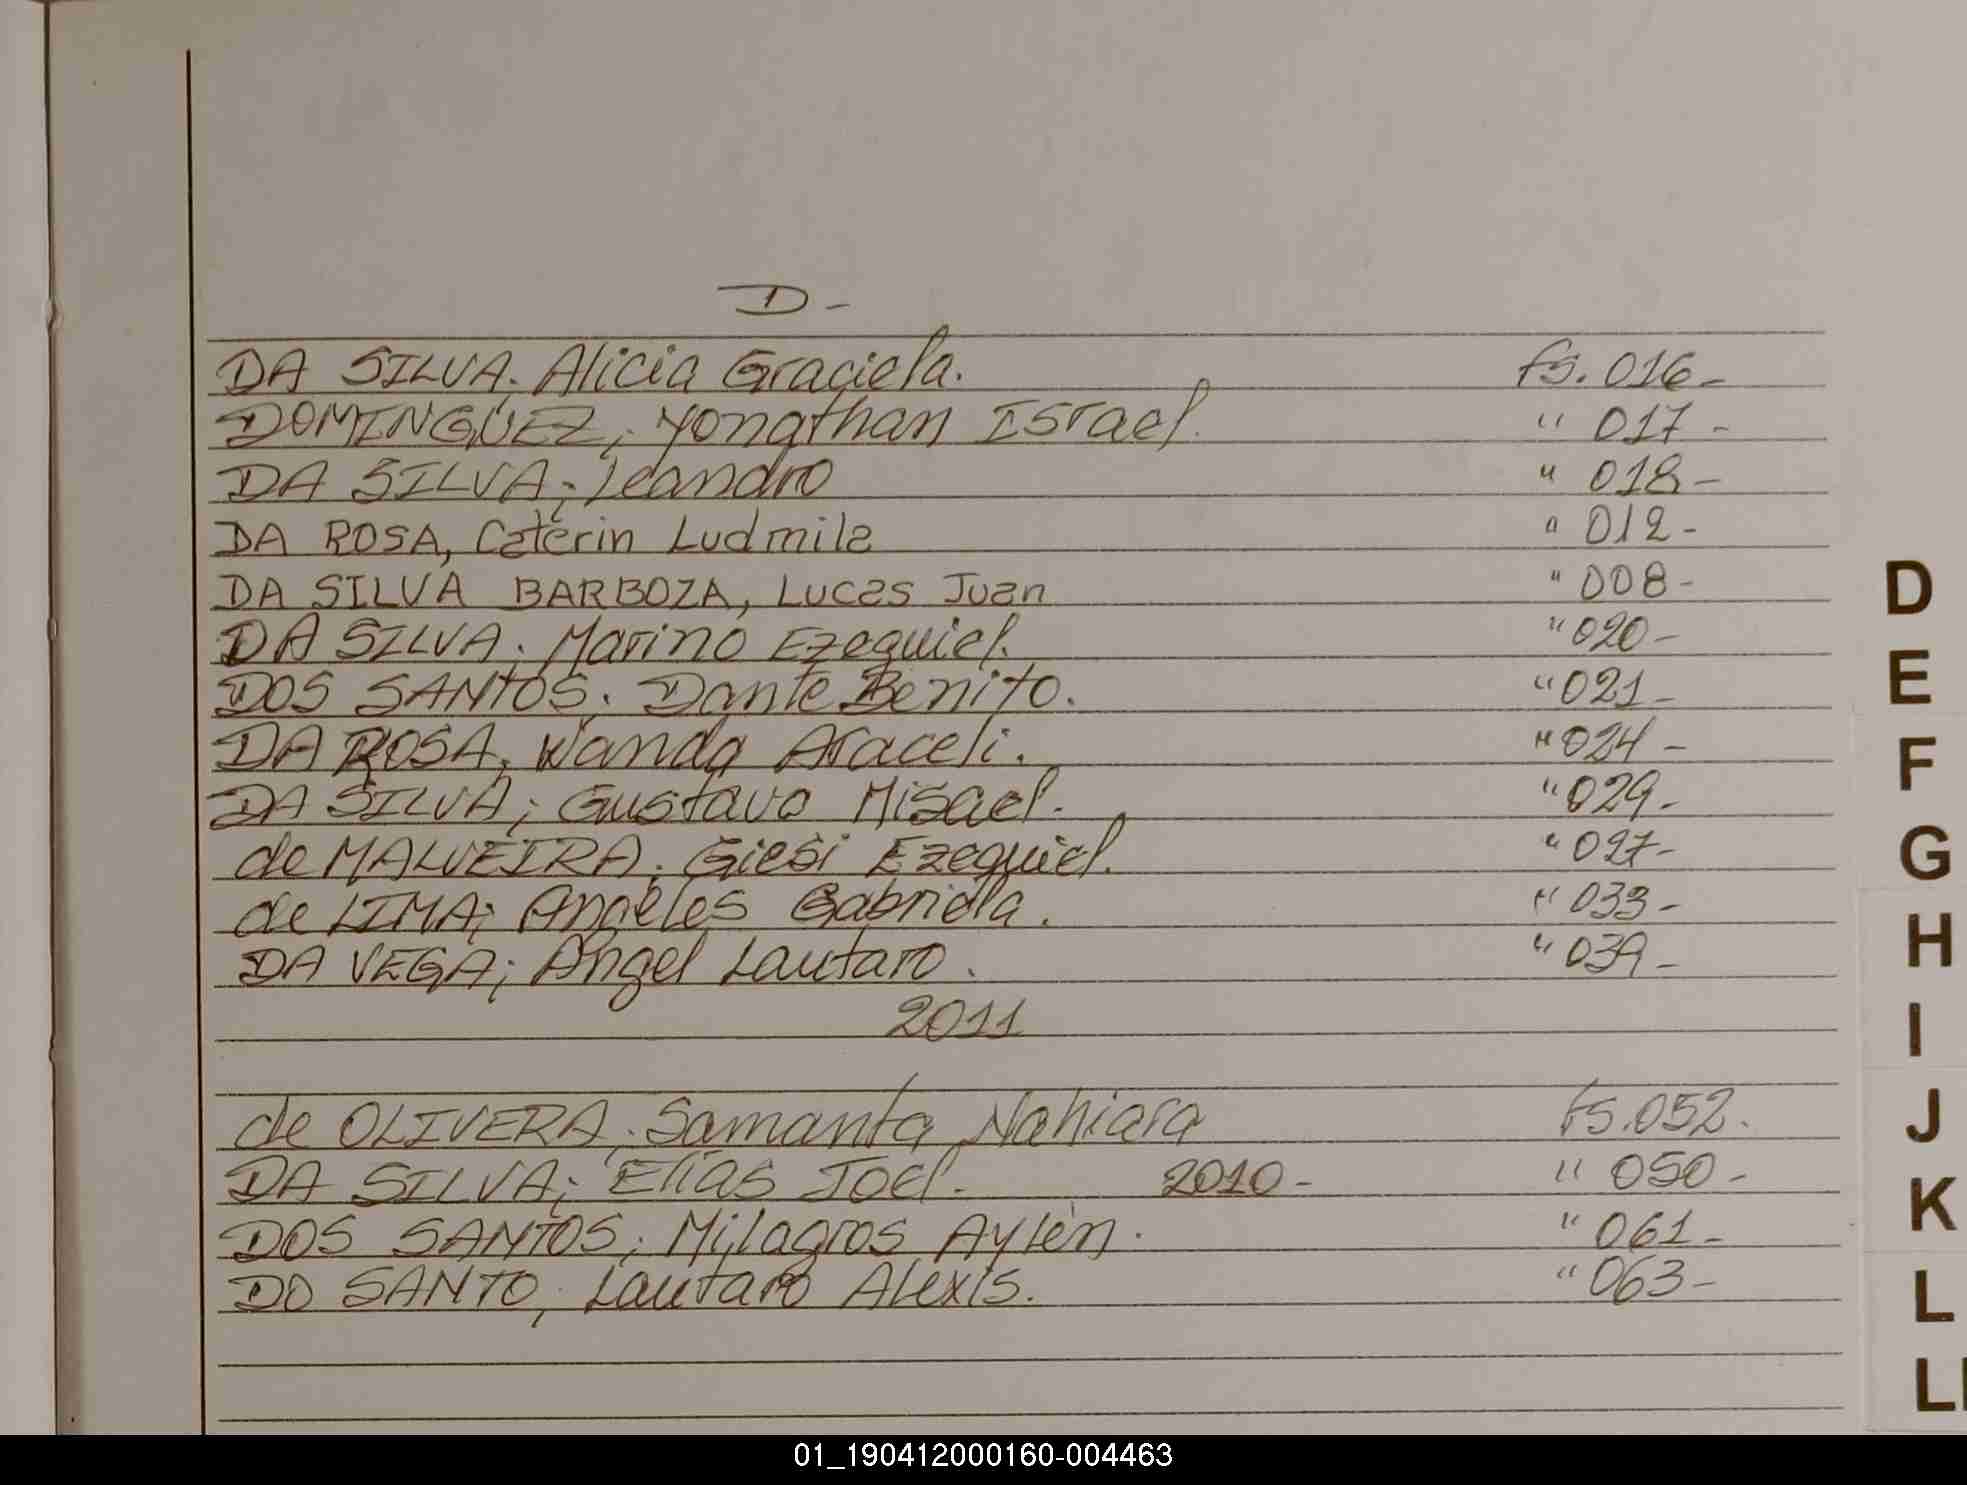 D-
DA SILVA. Alicia Graciela. fs. 016-
DOMINGUEZ; Yonathan ISrael. " 017-
DA SILVA; Leandro " 018-
DA ROSA, Caterin Ludmila " 012-
DA SILVA BARBOZA, Lucas Juan " 008-
DA SILVA; Marino Ezequiel. " 020-
DOS SANTOS; Dante Benito. " 021-
DA ROSA, Wanda Araceli. " 024-
DA SILVA; Gustavo Misael. " 029-
de MALVEIRA; Giesi Ezequiel. " 027-
de LIMA; Angeles Gabriela. " 033-
DA VEGA; Angel Lautaro. " 039-
2011
de OLIVERA; Samanta Nahiara fs. 052.
DA SILVA; Elías Joel. 2010- " 050-
DOS SANTOS; Milagros Aylén. " 061-
DO SANTO; Lautaro Alexis. " 063-
D
E
F
G
H
I
J
K
L
Ll
01_190412000160-004463